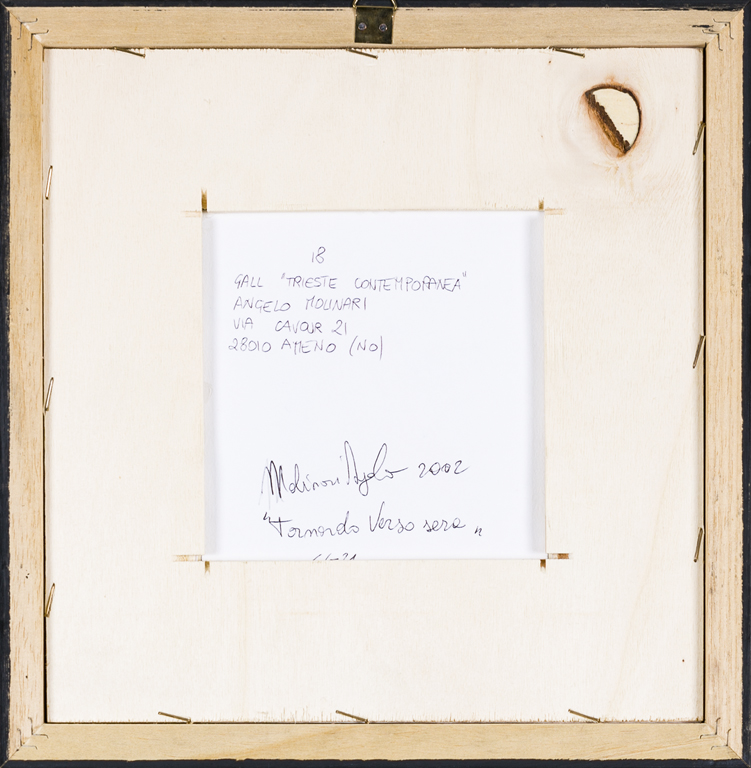 18
GALL "TRIESTE CONTEMPORANEA"
ANGELO MOLINARI
VIA CAVOUR 21
28010 AMENO (NO)
Molinari Angelo 2002
"Tornando Verso sera"